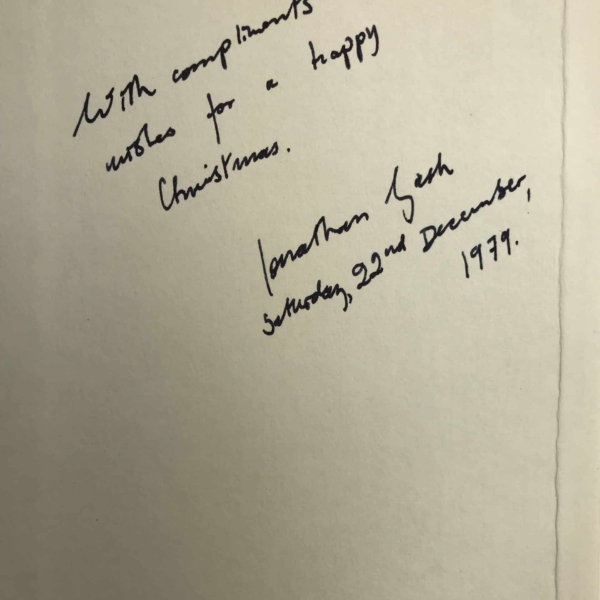 With compliments
wishes for a happy
Christmas.
Jonathan Gash
Saturday, 22nd December,
1979.